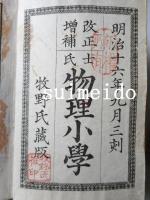 明治十六年九月三刻
改正
增補
士氏物理小學
牧野氏藏版
suimeido